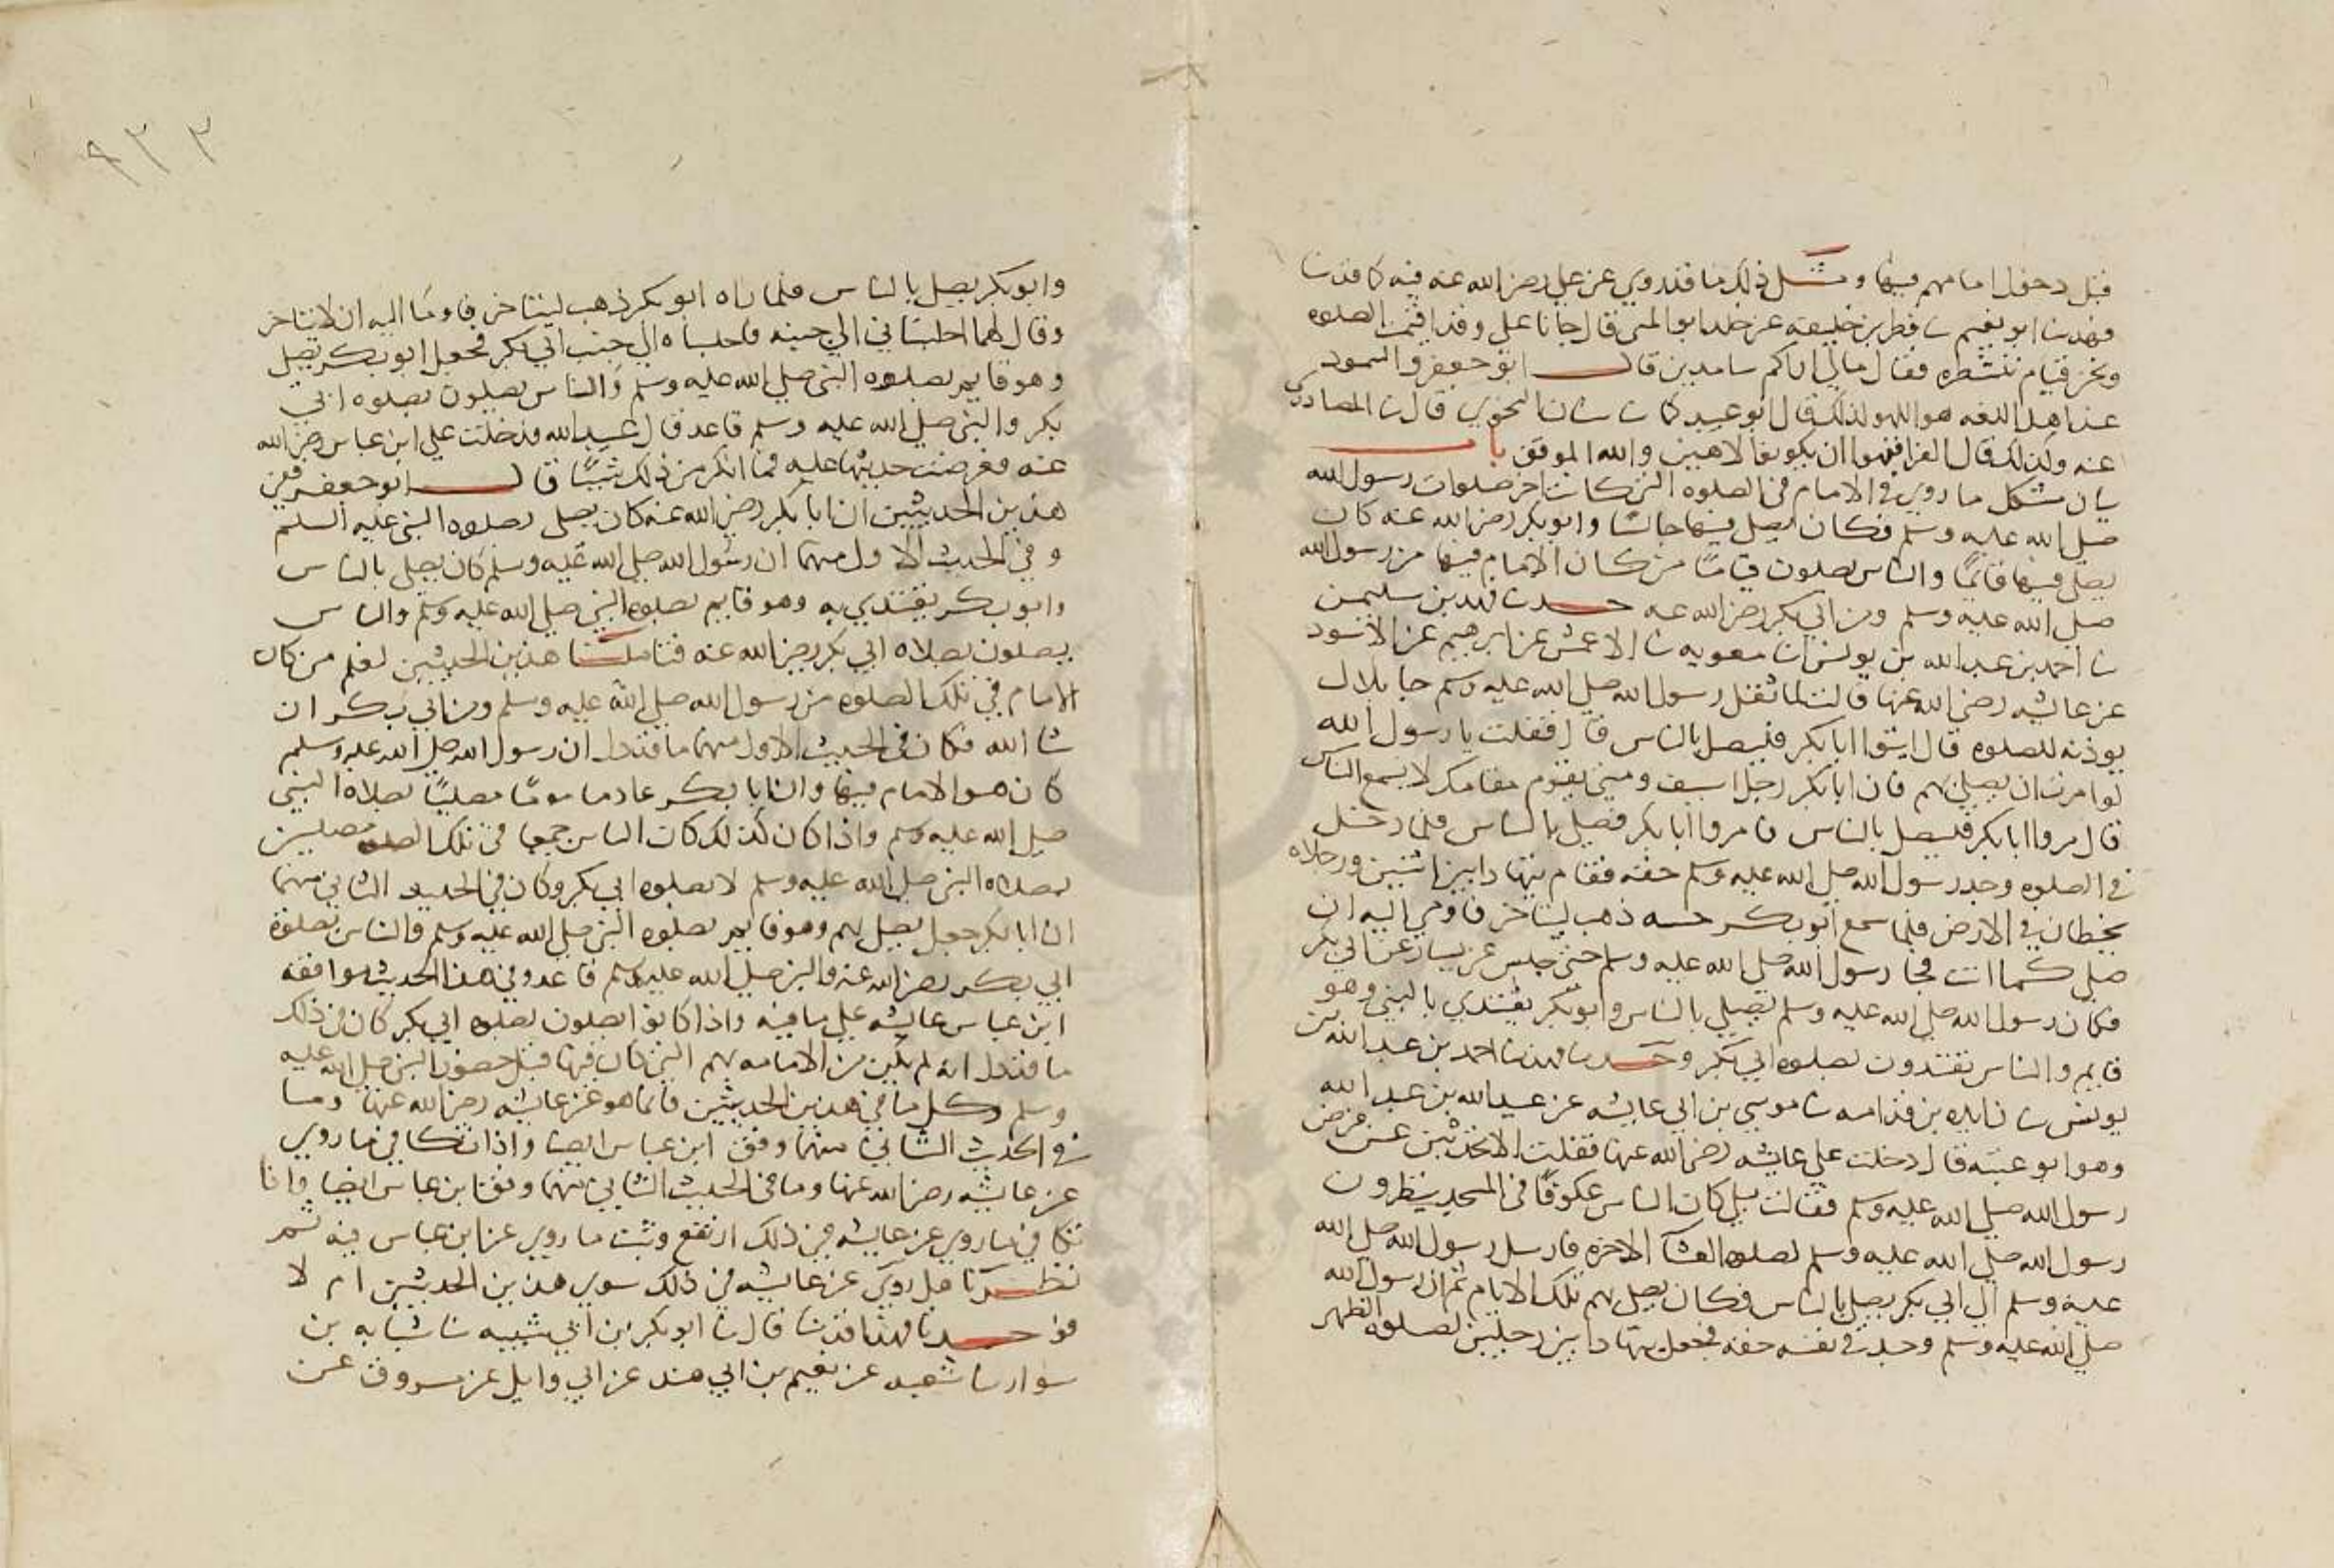 قبل دخول امامهم فيها ومثل ذلك ما قد روي عن علي رضي الله عنه فيه كما قد ثنا
فهد ثنا ابو نعيم ثنا فطر بن خليفة عن خلد ابو المثنى قال جانا علي وقد اقيمت الصلوه
ونحن قيام ننتظره فقال مالي اراكم سامدين قال ابو جعفر والسمود
عند اهل اللغه هو اللهو لذلك قال ابو عبيد
عنه وكذلك قال الفرا افنهوا ان يكونوا لاهين والله الموفق با
بيان مشكل ما روي في الامام في الصلوه التي كانت اخر صلوات رسول الله
صلي الله عليه وسلم فكان يصلي فيها جالسا وابو بكر رضي الله عنه كان
يصلي فيها قائما والناس يصلون قياما من كان الامام فيها من رسول الله
صلي الله عليه وسلم ومن ابي بكر رضي الله عنه حدثنا فهد بن سليمن
ثنا احمد بن عبد الله بن يونس ثنا معويه ثنا الاعمش عن ابرهيم عن الاسود
عن عايشه رضي الله عنها قالت لما ثقل رسول الله صلي الله عليه وسلم جا بلال
يوذنه للصلوه قال ايتوا ابا بكر فليصل بالناس قال فقلت يا رسول الله
لو امرت ان يصلي بهم فان ابا بكر رجل اسيف ومتي يقوم مقامك لا يسمع الناس
قال مروا ابا بكر فليصل بالناس فامروا ابا بكر فصلي بالناس فلما دخل
في الصلوه وجد رسول الله صلي الله عليه وسلم خفه فقام يتهادا بين اثنين ورجلاه
يخطان في الارض فلما سمع ابو بكر حسه ذهب ليتاخر فاومي اليه ان
صلي كما انت فجا رسول الله صلي الله عليه وسلم حتي جلس عن يسار عن ابي بكر
فكان رسول الله صلي الله عليه وسلم يصلي بالناس وابو بكر يقتدي بالنبي وهو
قايم والناس يقتدون بصلوه ابي بكر وحدثنا فهد ثنا احمد بن عبد الله بن
يونس ثنا زايده بن قدامه ثنا موسي بن ابي عايشه عن عبيد الله بن عبد الله
وهو ابو عتبه قال دخلت علي عايشه رضي الله عنها فقلت الا تحدثين عن مرض
رسول الله صلي الله عليه وسلم فقالت بلي كان الناس عكوفا في المسجد ينظرون
رسول الله صلي الله عليه وسلم لصلوه العشآ الاخره فارسل رسول الله صلي الله
عليه وسلم الي ابي بكر يصلي بالناس فكان يصلي بهم تلك الايام ثم ان رسول الله
صلي الله عليه وسلم وجد في نفسه خفه فجعل يتهادا بين رجلين لصلوه الظهر
٩٣٣
وابو بكر يصلي بالناس فلما راه ابو بكر ذهب ليتاخر فاومآ اليه ان لا يتاخر
وقال لهما اجلساني الي جنبه فاجلساه الي جنب ابي بكر فجعل ابو بكر يصلي
وهو قايم بصلوه النبي صلي الله عليه وسلم والناس يصلون بصلوه ابي
بكر والنبي صلي الله عليه وسلم قاعد قال عبيد الله فدخلت علي ابن عباس رضي الله
عنه فعرضت حديثها عليه فما انكر من ذلك شيئا قال ابو جعفر ففي
هذين الحديثين ان ابا بكر رضي الله عنه كان يصلي بصلوه النبي عليه السلم
وفي الحديث الاول منهما ان رسول الله صلي الله عليه وسلم كان يصلي بالناس
وابو بكر يقتدي به وهو قايم بصلوه النبي صلي الله عليه وسلم والناس
يصلون بصلاه ابي بكر رضي الله عنه فتاملنا هذين الحديثين لنعلم من كان
الامام في تلك الصلوه من رسول الله صلي الله عليه وسلم ومن ابي بكر ان
شا الله فكان في الحديث الاول منهما ما قد دل ان رسول الله صلي الله عليه وسلم
كان هو الامام فيها وان ابا بكر عاد ماموما مصليا بصلاه النبي
صلي الله عليه وسلم واذا كان كذلك كان الناس جميعا في تلك الصلوه مصلين
بصلاه النبي صلي الله عليه وسلم لا بصلوه ابي بكر وكان في الحديث الثاني منهما
ان ابا بكر جعل يصلي بهم وهو قايم بصلوه النبي صلي الله عليه وسلم والناس بصلوة
ابي بكر رضي الله عنه والنبي صلي الله عليه وسلم قاعد وفي هذا الحديث موافقه
ابن عباس عايشه علي ما فيه واذا كانوا يصلون بصلوه ابي بكر كان في ذلك
ما قد دل انه لم يكن من الامامه بهم التي كان فيها قبل حضور النبي صلي الله عليه
وسلم وكل ما في هذين الحديثين فانما هو عن عايشه رضي الله عنها وما
في الحديث الثاني منهما وفق ابن عباس ايضا واذا تكافي ما روي
عن عايشه رضي الله عنها وما في الحديث الثاني منهما وفق ابن عباس ايضا واذا
تكافي ما روي عن عايشه في ذلك ارتفع وثبت ما روي عن ابن عباس فيه ثم
نظرنا هل روي عن عايشه في ذلك سوي هذين الحديثين ام لا
فوجدنا فهدا قد ثنا قال ثنا ابو بكر بن ابي شيبه ثنا شبابه بن
سوار ثنا شعبه عن نعيم بن ابي هند عن ابي وايل عن مسروق عن